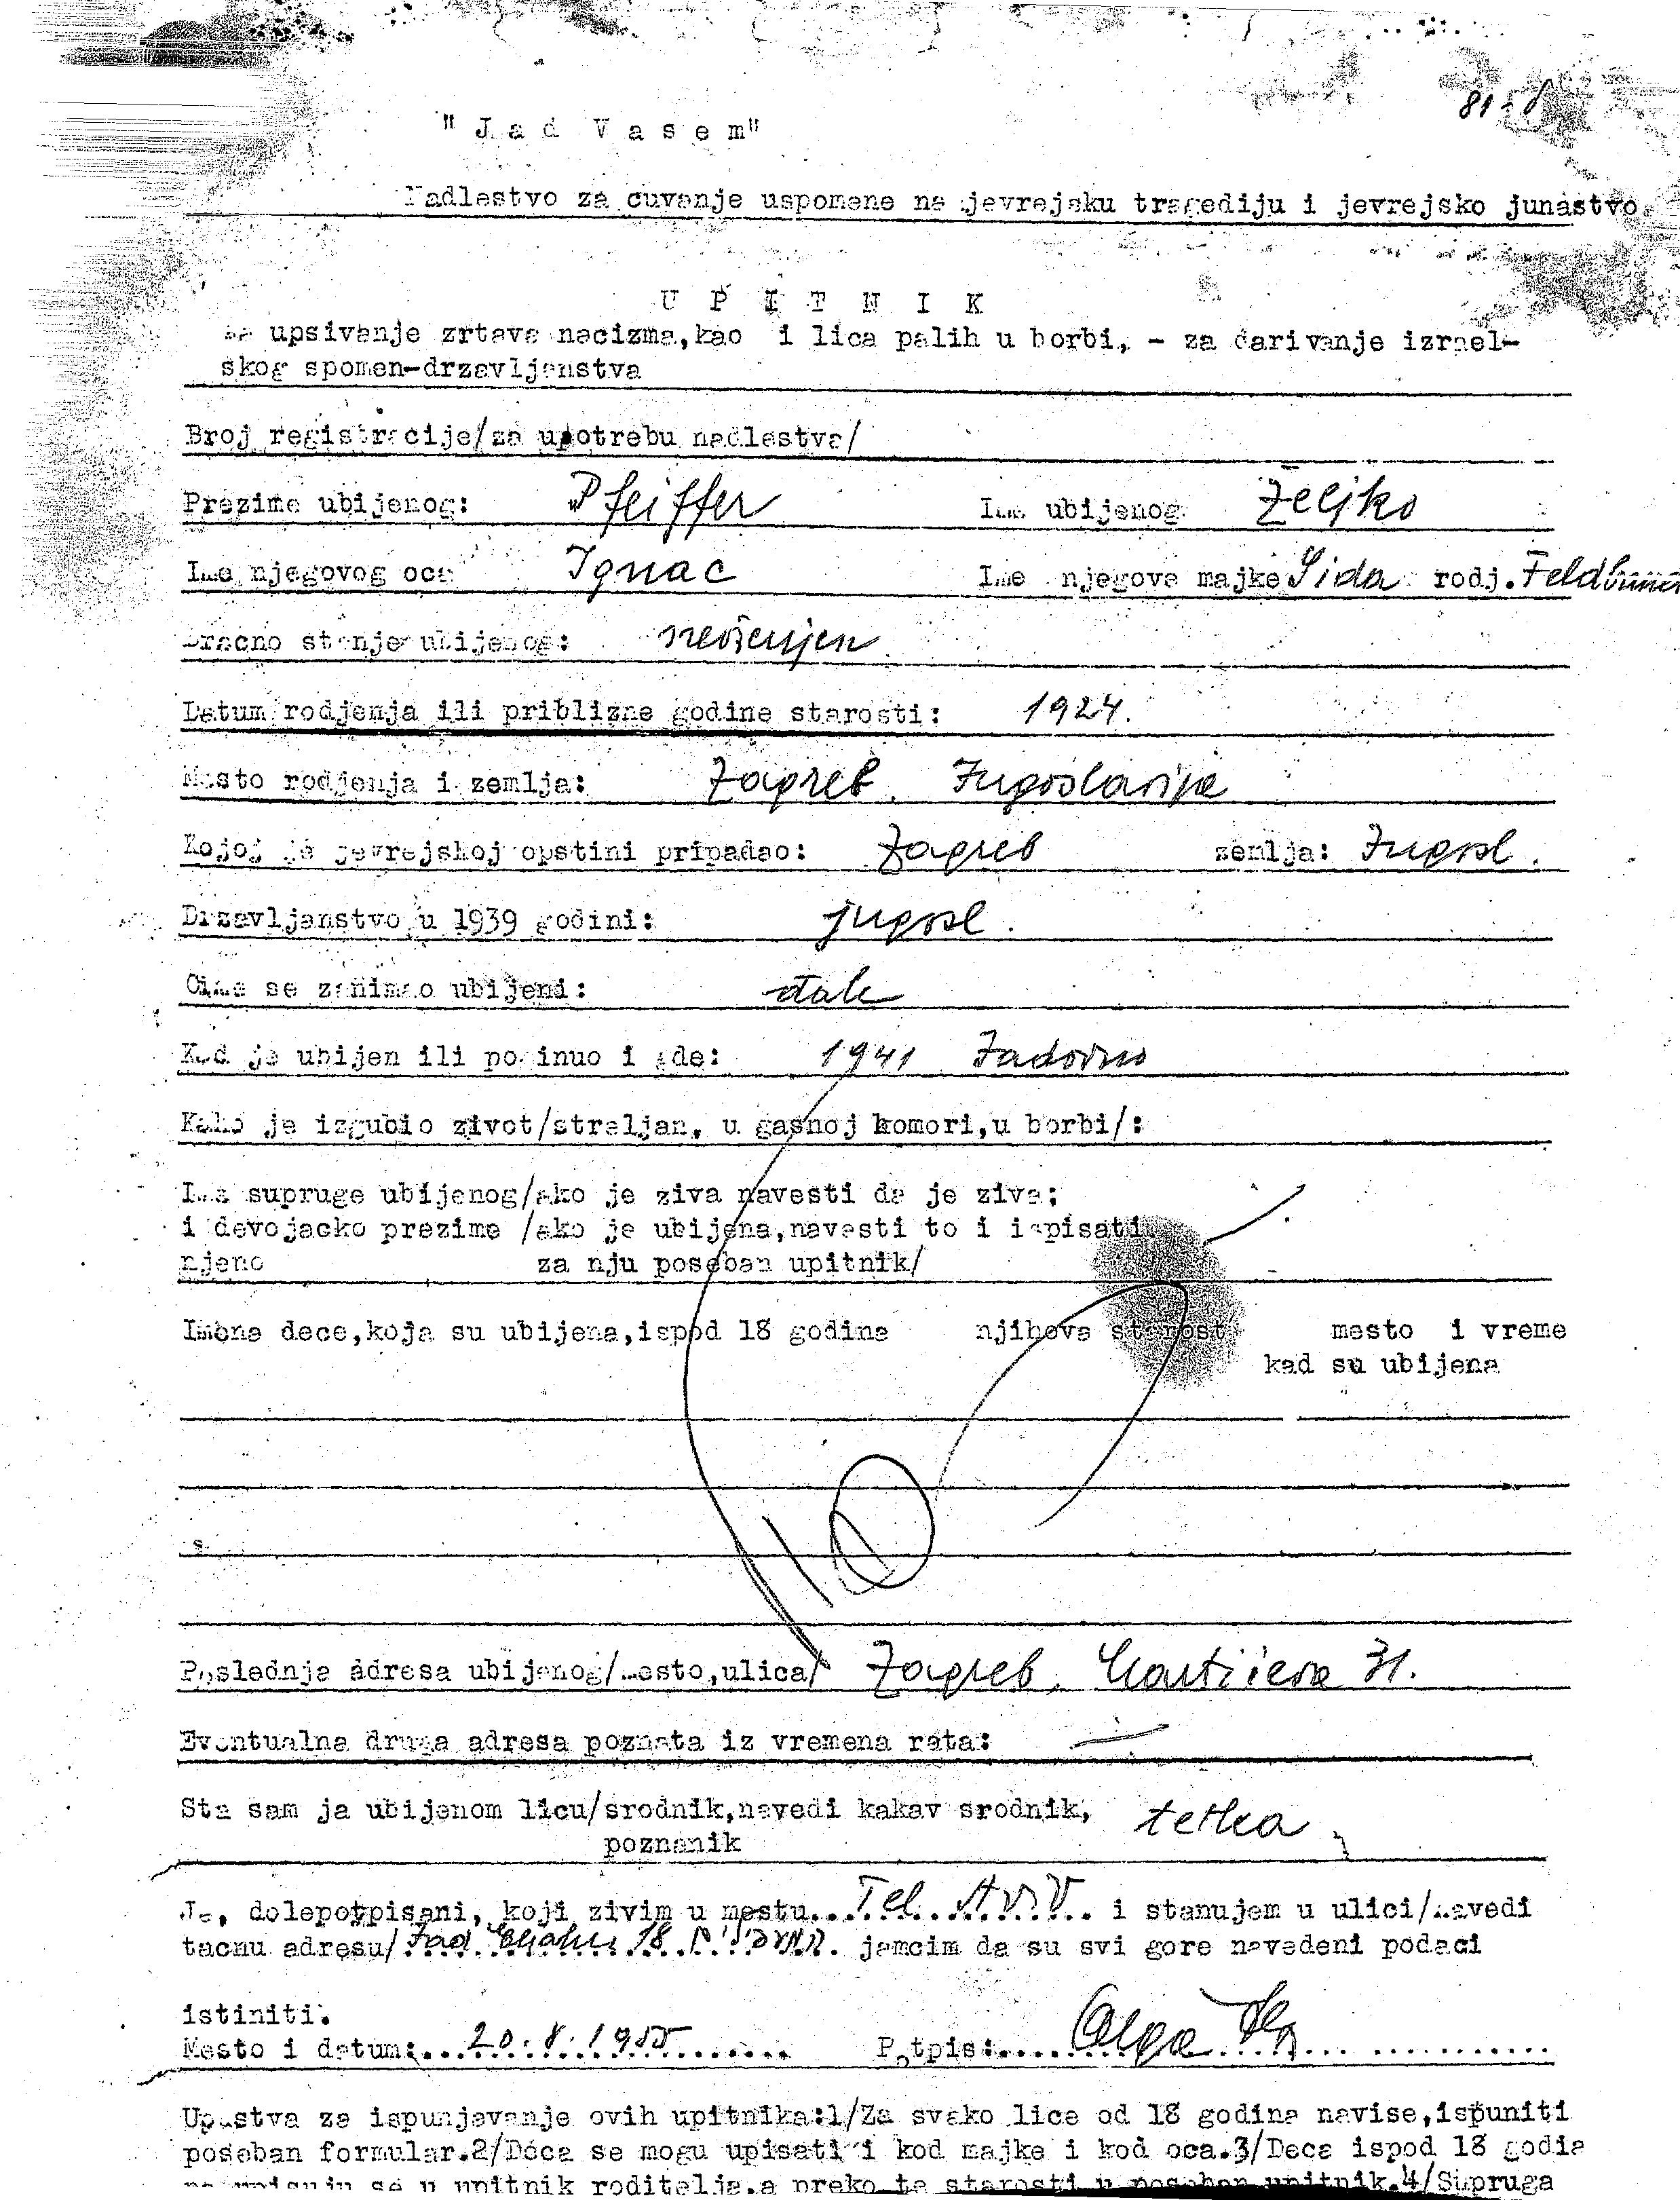 "Jad Vasem"
Nadlestvo za cuvanje uspomene na jevrejsku tragediju i jevrejsko junastvo
UPITNIK
za upsivanje zrtava nacizma,kao i lica palih u borbi, - za darivanje izrael-
skog spomen-drzavljanstva
Broj registracije/za upotrebu nadlestva/
Prezime ubijenog: Pfeiffer Ime ubijenog Željko
Ime njegovog oca Ignac Ime njegove majke Sida rodj.
Bracno stanje ubijenog: neoženjen
Datum rodjenja ili priblizne godine starosti: 1924.
Mesto rodjenja i zemlja: Zagreb, Jugoslavija
Kojoj je jevrejskoj opstini pripadao: Zagreb zemlja: Jugosl.
Drzavljanstvo u 1939 godini: jugosl.
Cime se zanimao ubijeni: đak
Kad je ubijen ili poginuo i gde: 1941 Jadovno
Kako je izgubio zivot/streljan, u gasnoj komori,u borbi/:
Ime supruge ubijenog/ako je ziva navesti da je ziva;
i devojacko prezime /ako je ubijena,navesti to i ispisati
njeno za nju poseban upitnik/
Imena dece,koja su ubijena,ispod 18 godina njihova starost mesto i vreme
kad su ubijena
Poslednja adresa ubijenog/mesto,ulica/ Zagreb, 31.
Eventualna druga adresa poznata iz vremena rata: —
Sta sam ja ubijenom licu/srodnik,navedi kakav srodnik, tetka
poznanik
Ja, dolepotpisani, koji zivim u mestu...Tel Aviv... i stanujem u ulici/navedi
tacnu adresu/ 18 jamcim da su svi gore navedeni podaci
istiniti.
Mesto i datum:...20.8.1955... Potpis:...Olga
Upustva za ispunjavanje ovih upitnika:1/Za svako lice od 18 godina navise,ispuniti
poseban formular.2/Deca se mogu upisati i kod majke i kod oca.3/Deca ispod 18 godia
se u upitnik roditelja,a preko te starosti u poseban upitnik.4/Supruga